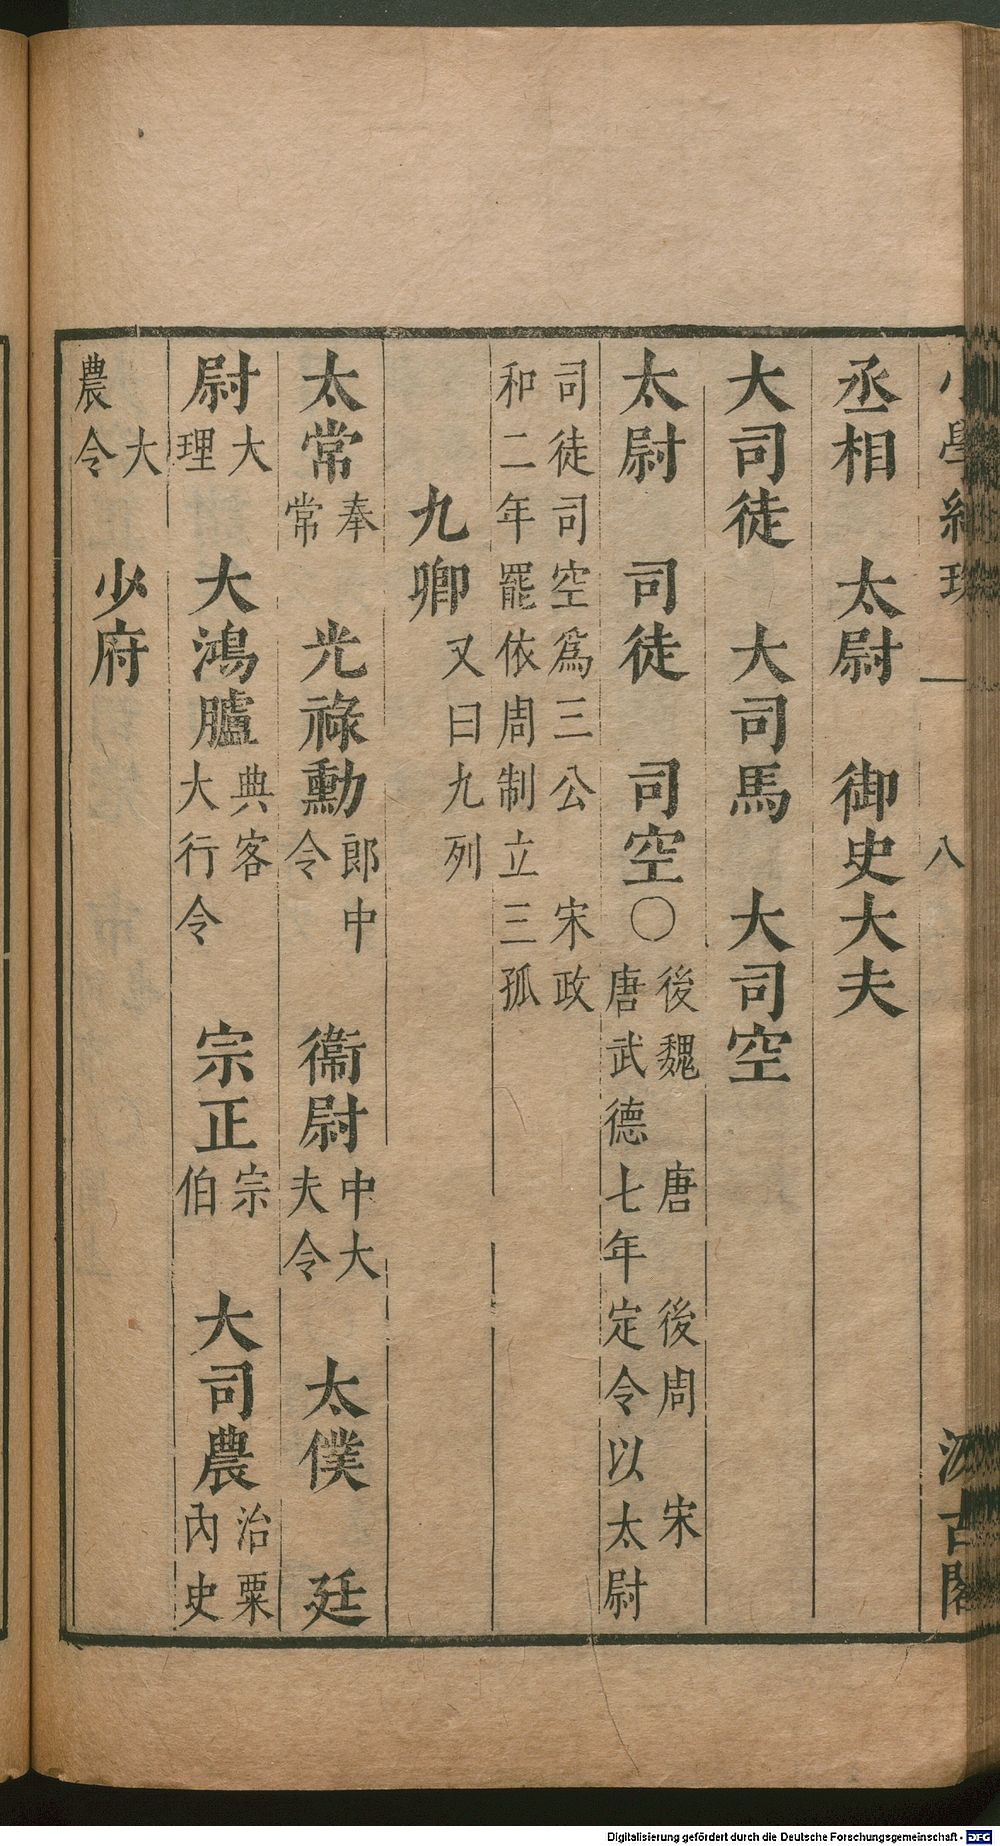 小學紺珠 一 八 汲古閣
丞相 太尉 御史大夫
大司徒 大司馬 大司空
太尉 司徒 司空○後魏 唐 後周 宋
唐武德七年定令以太尉
司徒司空爲三公 宋政
和二年罷依周制立三孤
九卿 又曰九列
太常奉常 光祿勳郎中令 衞尉中大夫令 太僕 廷
尉大理 大鴻臚典客大行令 宗正宗伯 大司農治粟內史
大農令 少府
Digitalisierung gefördert durch die Deutsche Forschungsgemeinschaft - DFG